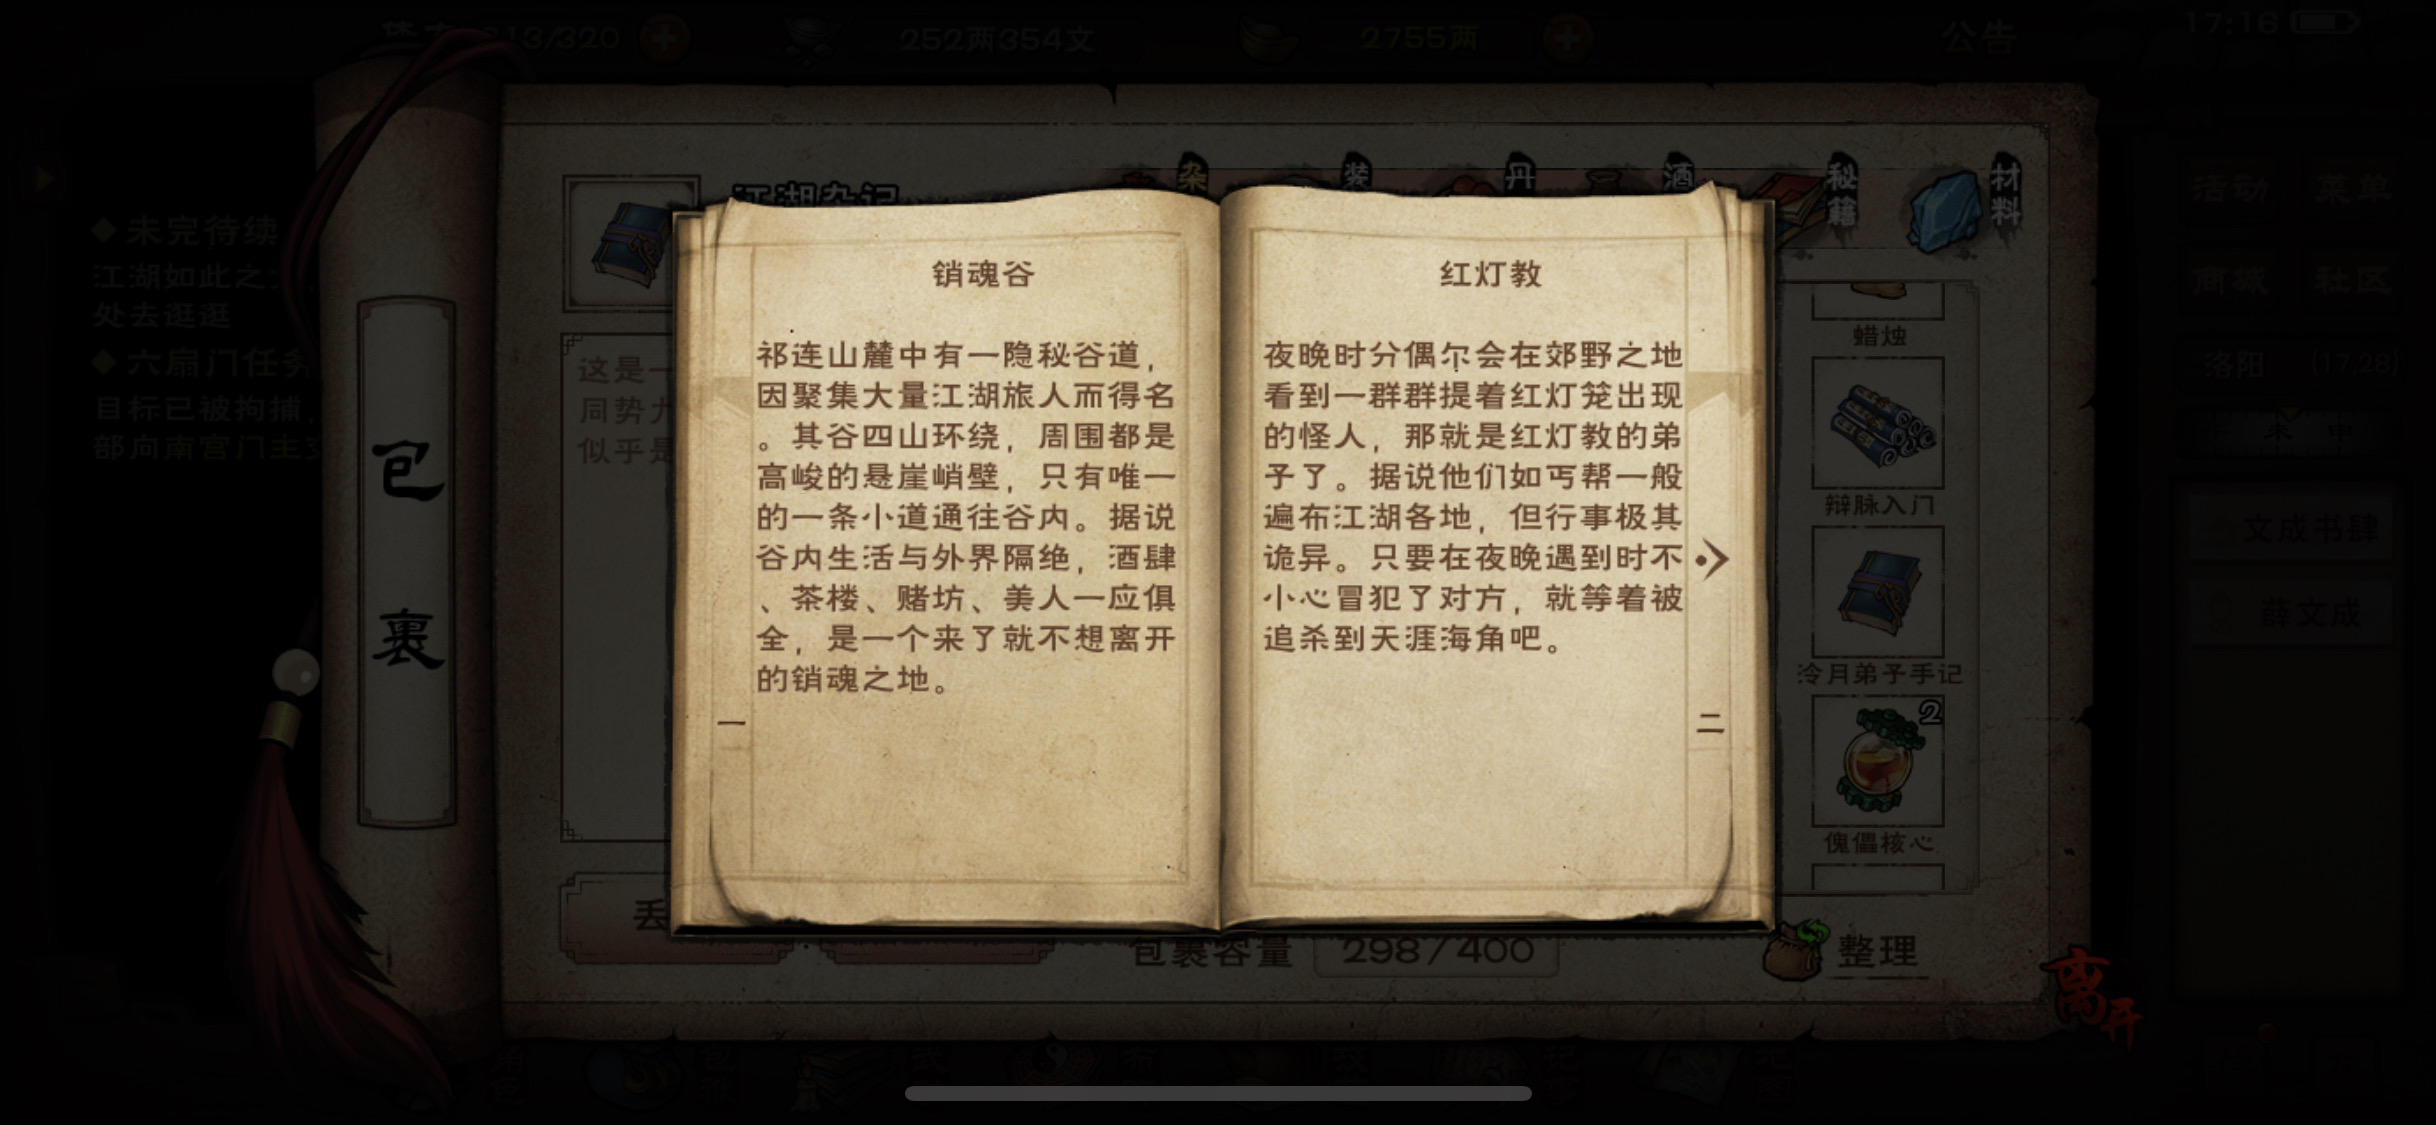 313/320
252两354文
2755两
公告
17:16
江湖杂记
杂
装
丹
酒
秘籍
材料
活动
菜单
商城
社区
未完待续
江湖如此之
处去逛逛
六扇门任务
目标已被拘捕，
部向南宫门主
包裹
这是一
同势力
似乎是
销魂谷
祁连山麓中有一隐秘谷道，
因聚集大量江湖旅人而得名
。其谷四山环绕，周围都是
高峻的悬崖峭壁，只有唯一
的一条小道通往谷内。据说
谷内生活与外界隔绝，酒肆
、茶楼、赌坊、美人一应俱
全，是一个来了就不想离开
的销魂之地。
一
红灯教
夜晚时分偶尔会在郊野之地
看到一群群提着红灯笼出现
的怪人，那就是红灯教的弟
子了。据说他们如丐帮一般
遍布江湖各地，但行事极其
诡异。只要在夜晚遇到时不
小心冒犯了对方，就等着被
追杀到天涯海角吧。
二
蜡烛
辩脉入门
冷月弟子手记
2
傀儡核心
洛阳 (17,28)
未 申
文成书肆
薛文成
丢
包裹容量 298/400
整理
离开